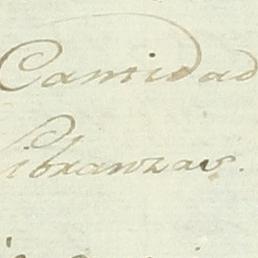 Cantidad
Libranzas.